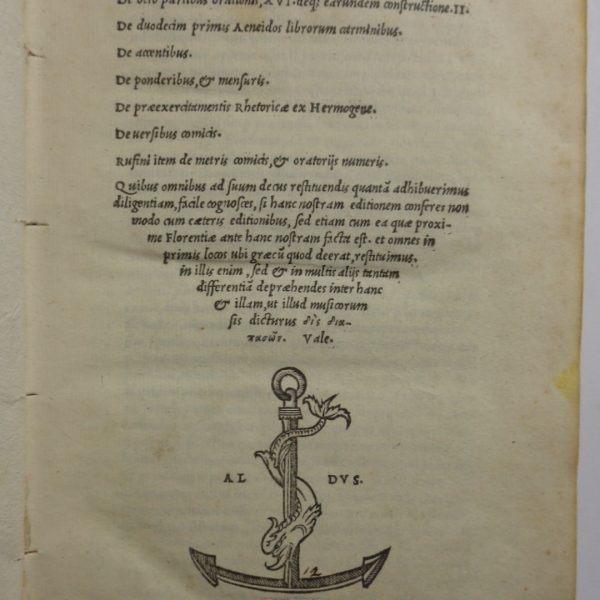 De octo partibus orationis, XVI. deq; earundem constructione. II.
De duodecim primis Aeneidos librorum carminibus.
De accentibus.
De ponderibus, & mensuris.
De præexercitamentis Rhetoricæ ex Hermogene.
De uersibus comicis.
Rufini item de metris comicis, & oratorijs numeris.
Quibus omnibus ad suum decus restituendis quantā adhibuerimus
diligentiam, facile cognosces, si hanc nostram editionem conferes non
modo cum cæteris editionibus, sed etiam cum ea quæ proxi-
me Florentiæ ante hanc nostram facta est. et omnes in
primis locos ubi græcū quod deerat, restituimus.
in illis enim, sed & in multis alijs tantam
differentiā depræhendes inter hanc
& illam, ut illud musicorum
sis dicturus δὶς δια-
πασῶν. Vale.
AL DVS.
12